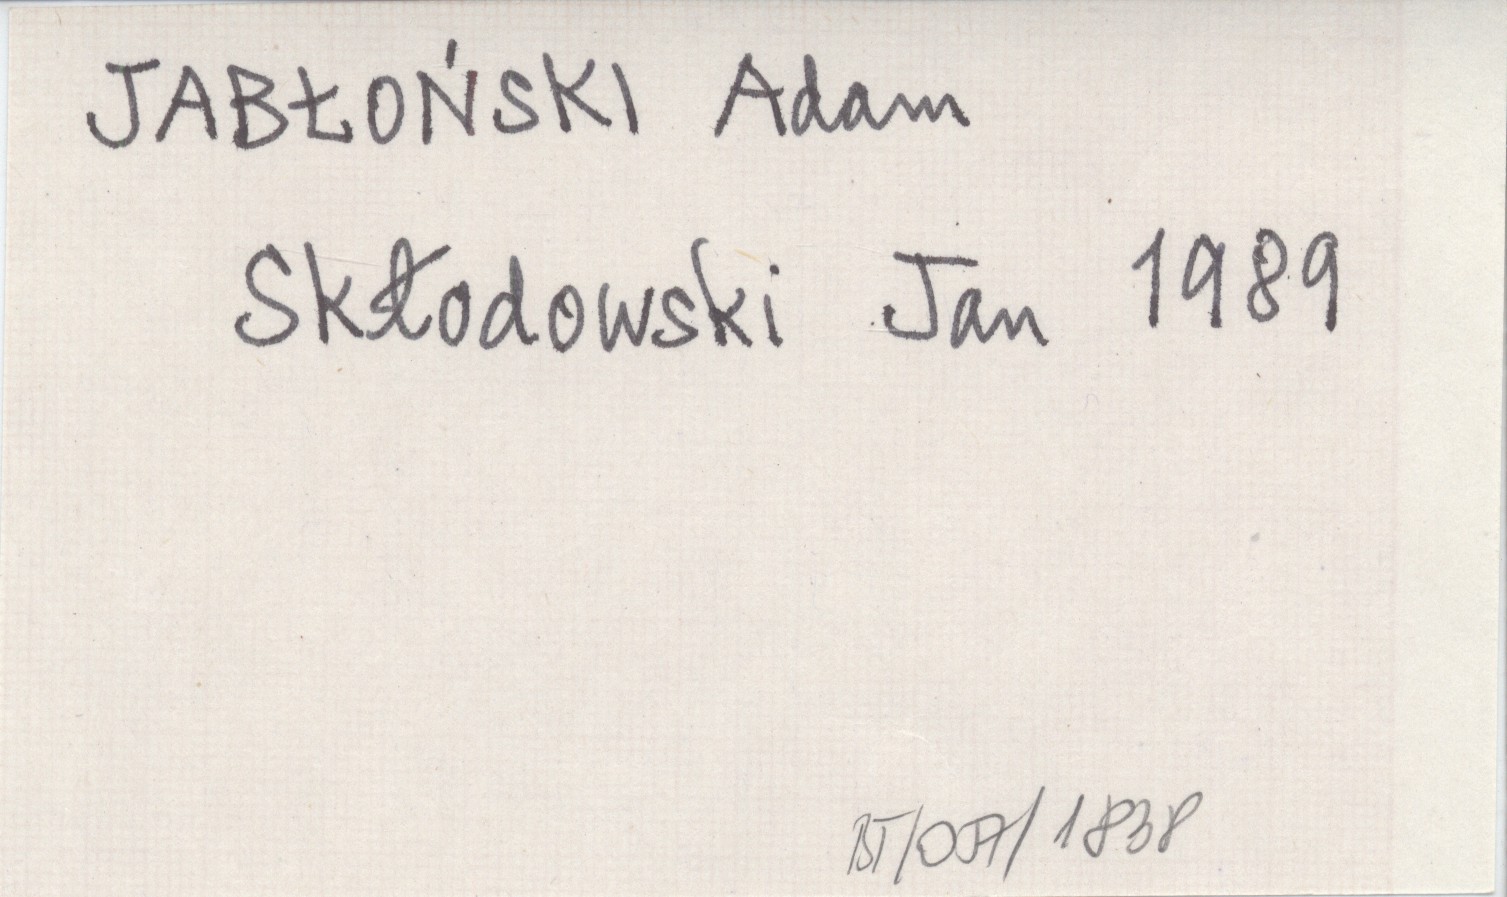 JABŁOŃSKI Adam
Skłodowski Jan 1989
1838